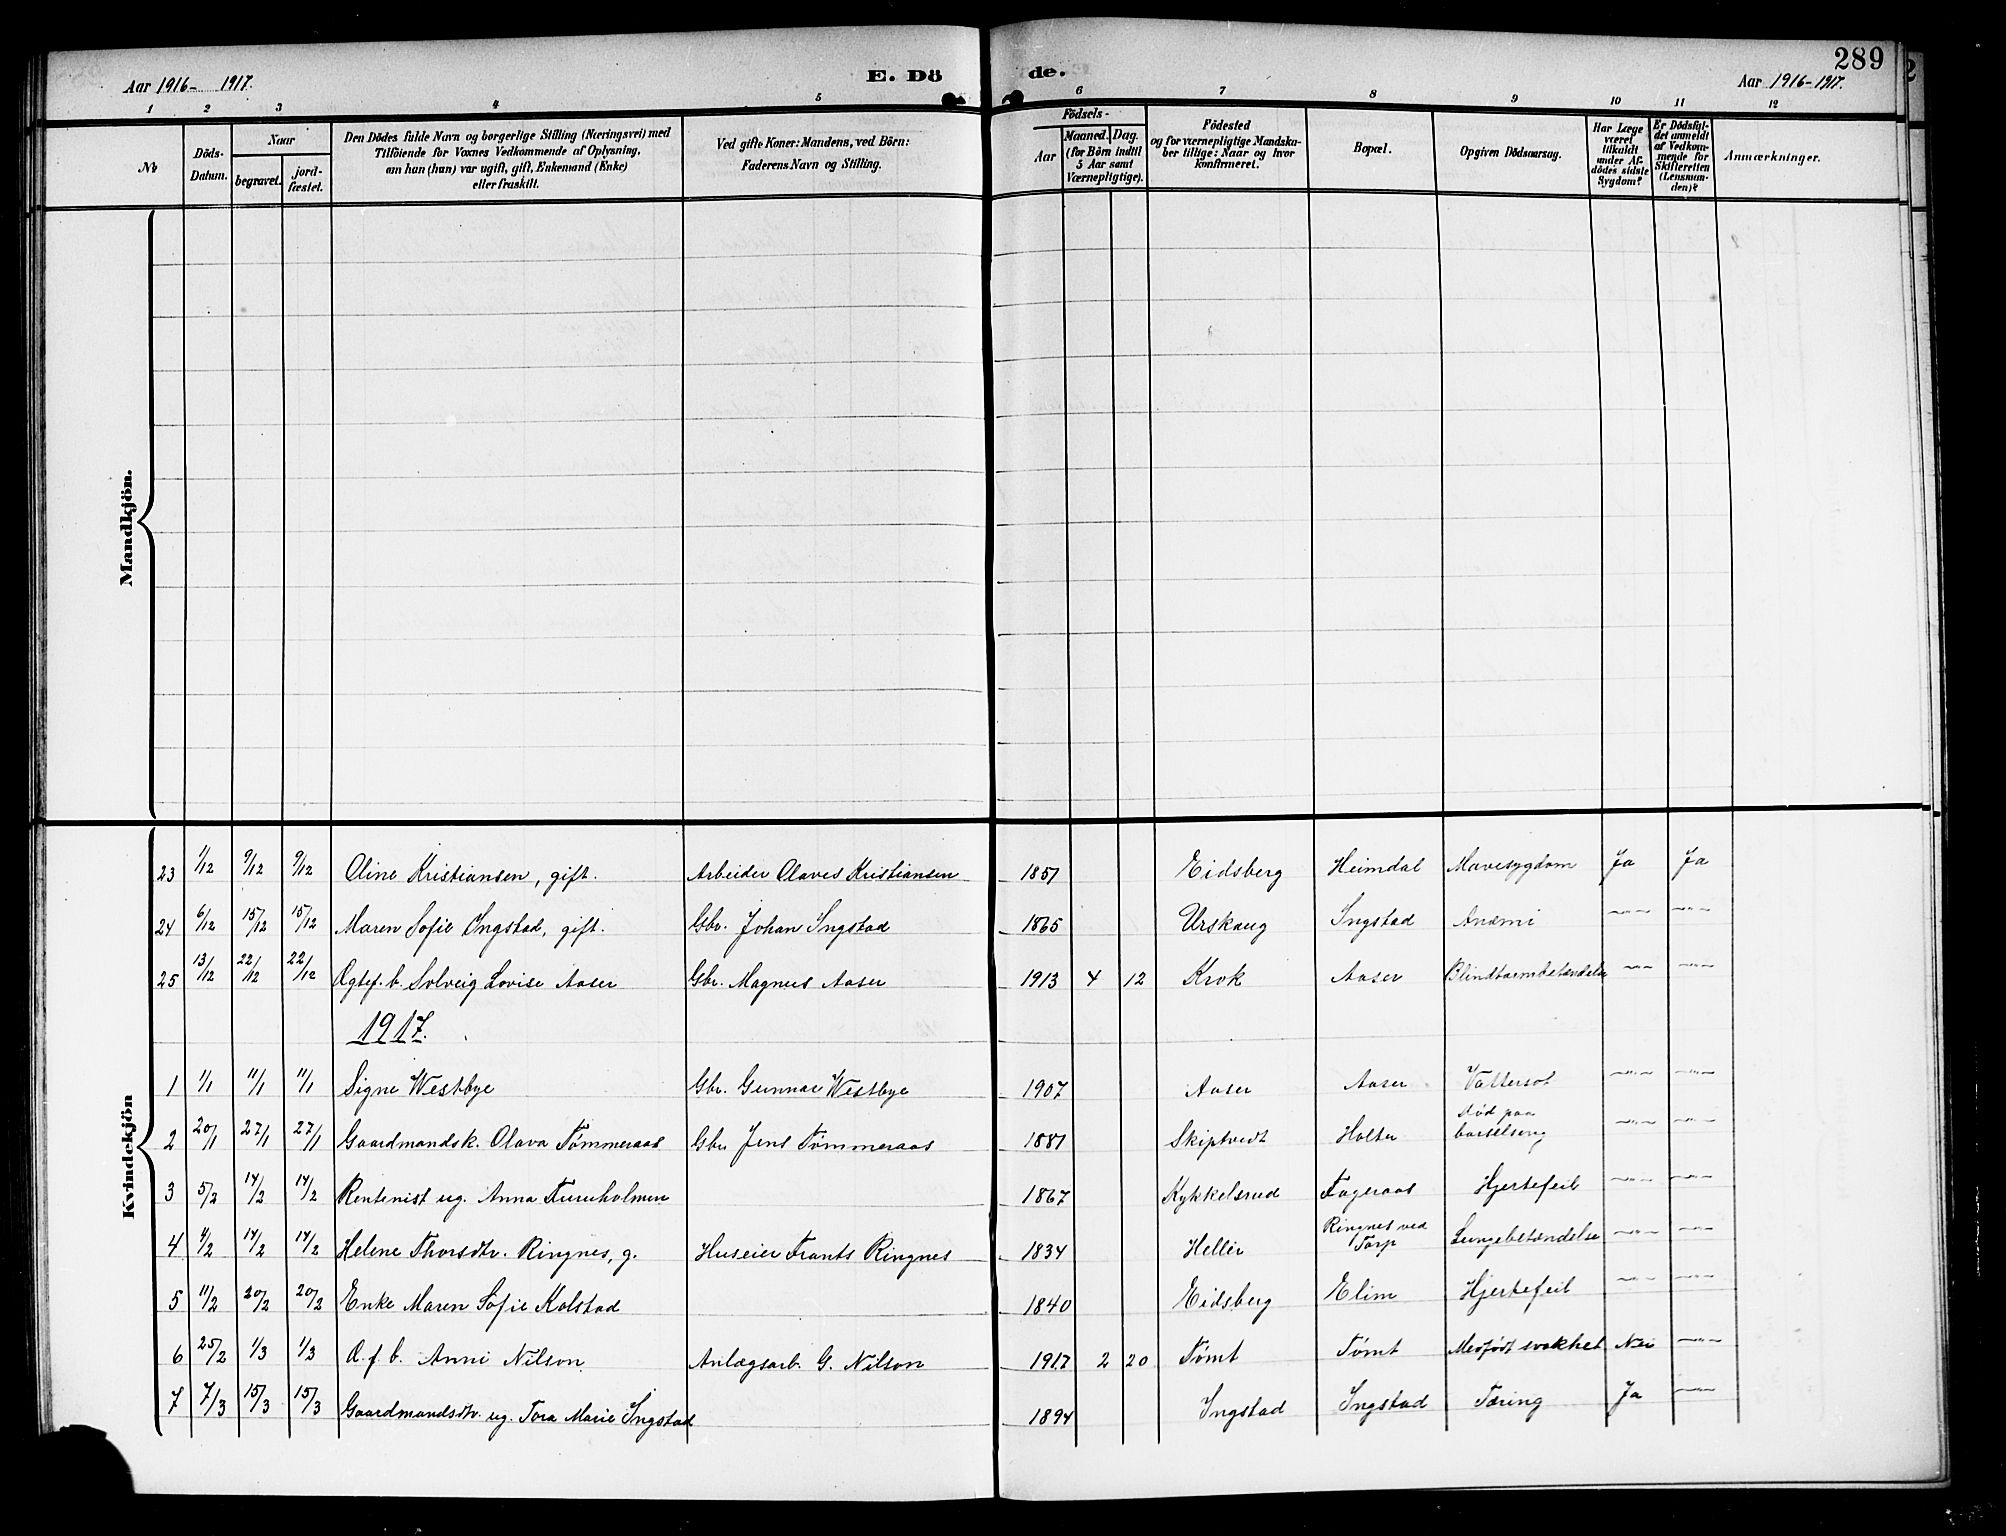 289
Aar 1916- 1917. E. Dö de. Aar 1916-1917.
1 2 3 4 5 6 7 8 9 10 11 12
No
Döds-Datum.
Naar
begravet.
jord-fæstet.
Den Dödes fulde Navn og borgerlige Stilling (Næringsvei) med
Tilföiende for Voxnes Vedkommende af Oplysning,
om han (hun) var ugift, gift, Enkemand (Enke)
eller fraskilt.
Ved gifte Koner: Mandens, ved Börn:
Faderens Navn og Stilling.
Födsels-
Aar
Maaned. Dag.
(for Börn indtil
5 Aar samt
Værnepligtige).
Födested
og for værnepligtige Mandska-
ber tillige: Naar og hvor
konfirmeret.
Bopæl.
Opgiven Dödsaarsag.
Har Læge
været
tilkaldt
under Af-
dödes sidste
Sygdom?
Er Dödsfal-
det anmeldt
af Vedkom-
mende for
Skifteretten
(Lensman-
den)?
Anmærkninger.
Mandkjön.
Kvindekjön
23 1/12 9/12 9/12 Oline Kristiansen, gift. Arbeider Olaves Kristiansen 1851 Eidsberg Heimdal Mavesygdom Ja Ja
24 6/12 15/12 15/12 Maren Sofie Ingstad, gift. Gbr. Johan Ingstad 1865 Urskaug Ingstad Anæmi —"— —"—
25 13/12 22/12 22/12 Ægtef. b. Solveig Lovise Aaser Gbr. Magnus Aaser 1913 4 12 Krok Aaser Blindtarmbetændelse —"— —"—
1917.
1 1/1 11/1 11/1 Signe Westbye Gbr. Gunnar Westbye 1907 Aaser Aaser Vattersot —"— —"—
2 20/1 27/1 27/1 Gaardmandsk. Olava Tømmeraas Gbr. Jens Tømmeraas 1881 Skiptvedt Holter død paa barselseng —"— —"—
3 5/2 14/2 14/2 Rentenist ug. Anna Furuholmen 1867 Kykkelsrud Fageraas Hjertefeil —"— —"—
4 4/2 14/2 14/2 Helene Thorsdtr. Ringnes, g. Huseier Frants Ringnes 1834 Heller Ringnes ved Torp Lungebetændelse —"— —"—
5 11/2 20/2 20/2 Enke Maren Sofie Kolstad 1840 Eidsberg Elim Hjertefeil —"— —"—
6 25/2 1/3 1/3 Æ. f. b. Anni Nilson Anlægsarb. G. Nilson 1917 2 20 Tømt Tømt Medfødt svakhet Nei —"—
7 7/3 15/3 15/3 Gaardmandsdtr. ug. Tora Marie Ingstad 1894 Ingstad Ingstad Tæring Ja —"—